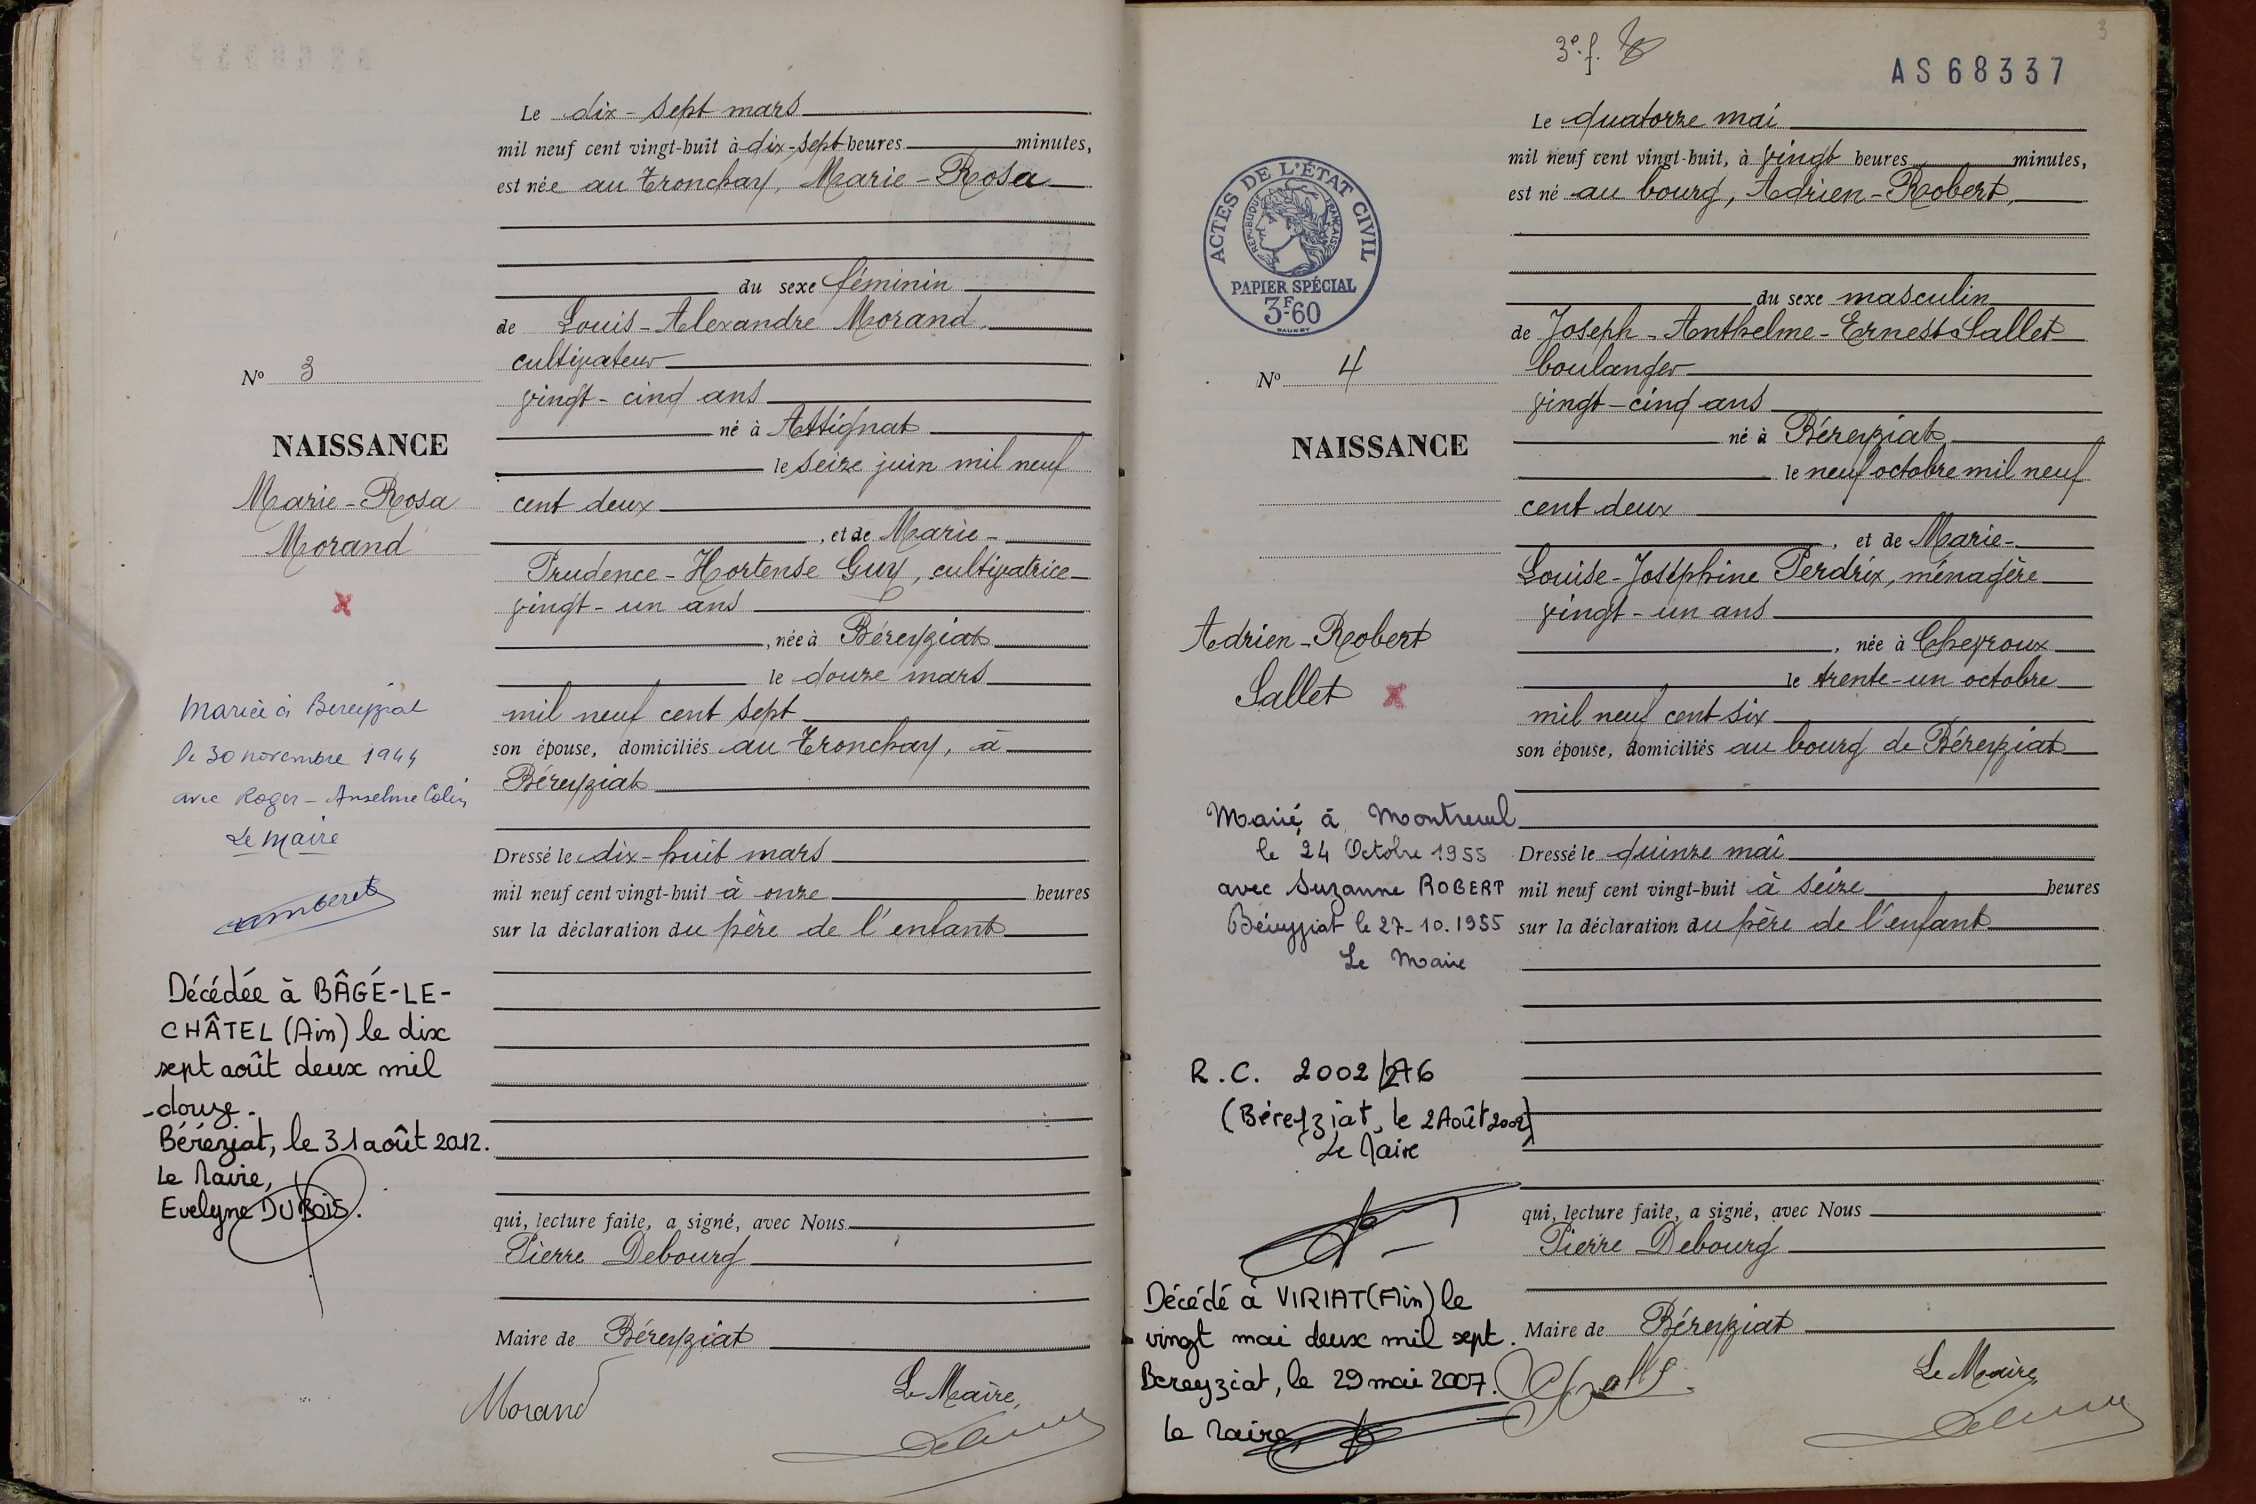 Le dix-sept mars
mil neuf cent vingt-huit à dix-sept heures minutes,
est née au Tronchay, Marie-Rosa
du sexe féminin
de Louis-Alexandre Morand
cultivateur
vingt-cinq ans
né à Attignat
le seize juin mil neuf
cent deux
, et de Marie-
Prudence-Hortense Guy, cultivatrice
vingt-un ans
, née à Béreyziat
le douze mars
mil neuf cent sept
son épouse, domiciliés au Tronchay, à
Béreyziat
Dressé le dix-huit mars
mil neuf cent vingt-huit à onze heures
sur la déclaration du père de l'enfant
qui, lecture faite, a signé, avec Nous
Pierre Debourg
Maire de Béreyziat
Morand
Le Maire,
No 3
NAISSANCE
Marie-Rosa
Morand
X
Mariée à Bereyziat
le 30 novembre 1944
avec Roger-Anselme Colin
Le Maire
Décédée à BÂGÉ-LE-
CHÂTEL (Ain) le dix
sept août deux mil
-douze-
Béréziat, le 31 août 2012.
Le Maire,
Evelyne DUBOIS.
3e. f.
3
AS68337
ACTES DE L'ÉTAT CIVIL
RÉPUBLIQUE FRANÇAISE
PAPIER SPÉCIAL
3F60
Le quatorze mai
mil neuf cent vingt-huit, à vingt heures minutes,
est né au bourg, Adrien-Robert,
du sexe masculin
de Joseph-Anthelme-Ernest Sallet
boulanger
vingt-cinq ans
né à Béreyziat
le neuf octobre mil neuf
cent deux
, et de Marie-
Louise-Joséphine Perdrix, ménagère
vingt-un ans
, née à Chevroux
le trente-un octobre
mil neuf cent six
son épouse, domiciliés au bourg de Béreyziat
Dressé le quinze mai
mil neuf cent vingt-huit à seize heures
sur la déclaration du père de l'enfant
qui, lecture faite, a signé, avec Nous
Pierre Debourg
Maire de Béreyziat
Le Maire,
No 4
NAISSANCE
Adrien-Robert
Sallet X
Marié à Montreuil
le 24 Octobre 1955
avec Suzanne ROBERT
Béreyziat le 27-10.1955
Le Maire
R.C. 2002/276
(Béreyziat, le 2 Août 2002)
Le Maire
Décédé à VIRIAT (Ain) le
vingt mai deux mil sept.
Bereyziat, le 29 mai 2007.
Le Maire